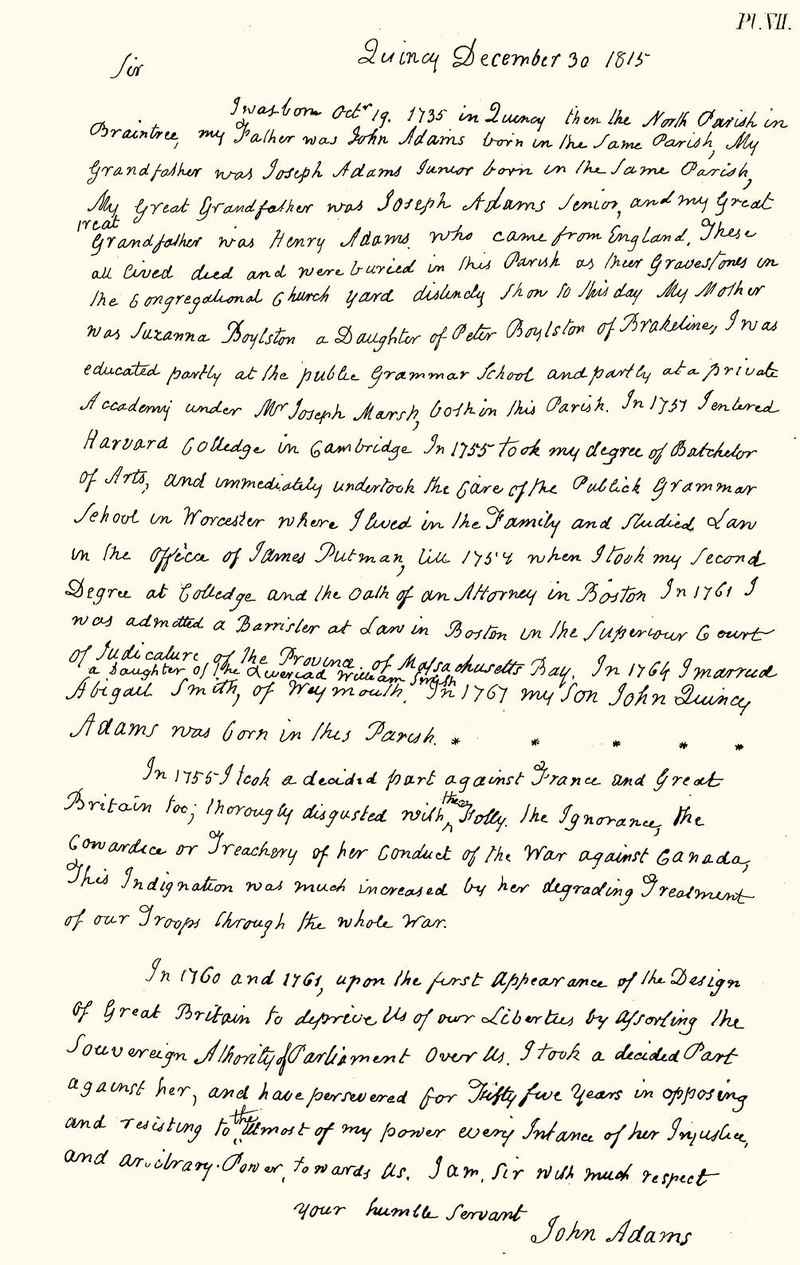 Pl. VII.
Quincy December 30 1815
Sir
I was born Octr 19. 1735 in Quincy then the North Parish in
Braintree, my Father was John Adams born in the same Parish, My
Grandfather was Joseph Adams Junior born in the same Parish,
My Great Grandfather was Joseph Adams Senior, and my Great
great
Grandfather was Henry Adams who came from England. These
all lived died and were buried in this Parish as their Gravestones in
the Congregational Church yard distinctly show to this day My Mother
was Suzanna Boylston a Daughter of Peter Boylston of Brokeline, I was
educated partly at the public Grammar School and partly at a private
Accademy under Mr Joseph Marsh, both in this Parish. In 1751 I entered
Harvard Colledge in Cambridge In 1755 took my degree of Batchelor
of Arts, and immediately undertook the Care of the Publick Grammar
School in Worcester where I lived in the Family and studied Law
in the office of James Putman, till 1758 when I took my second
Degree at Colledge and the Oath of an Attorney in Boston In 1761 I
was admitted a Barrister at Law in Boston in the Superiour Court
of Judicature of the Province of Massachusetts Bay. In 1764 I married
a Daughter of the Revered William Smith
Abigail Smith, of Weymouth. In 1767 my Son John Quincy
Adams was born in this Parish. * * * * *
In 1755 I took a decided part against France and Great
Britain too; thorougly disgusted with
then
Folly. the Ignorance, the
Cowardice or Treachery of her Conduct of the War against Canada,
This Indignation was much increased by her degrading Treatment
of our Troops through the whole War.
In 1760 and 1761, upon the first Appearance of the Design
of Great Britain to deprive Us of our Liberties by Assorting the
Souvereign Athority of Parliament Over Us. I took a decided Part
against her, and have persevered for Fifty five Years in opposing
and resisting to the utmost of my power every Intance of her Injustice,
and arbitrary Power, towards Us. I am, Sir with much respect
your humble Servant
John Adams